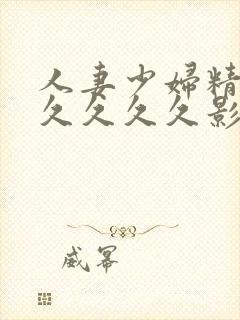 人妻少婦精
久久久久影
威冪